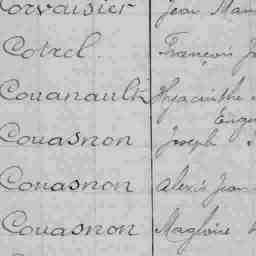 Corvaisier Jean
Cotrel François
Couanault Hyacinthe
Couasnon Joseph
Couasnon Alexis Jean
Couasnon Magloire